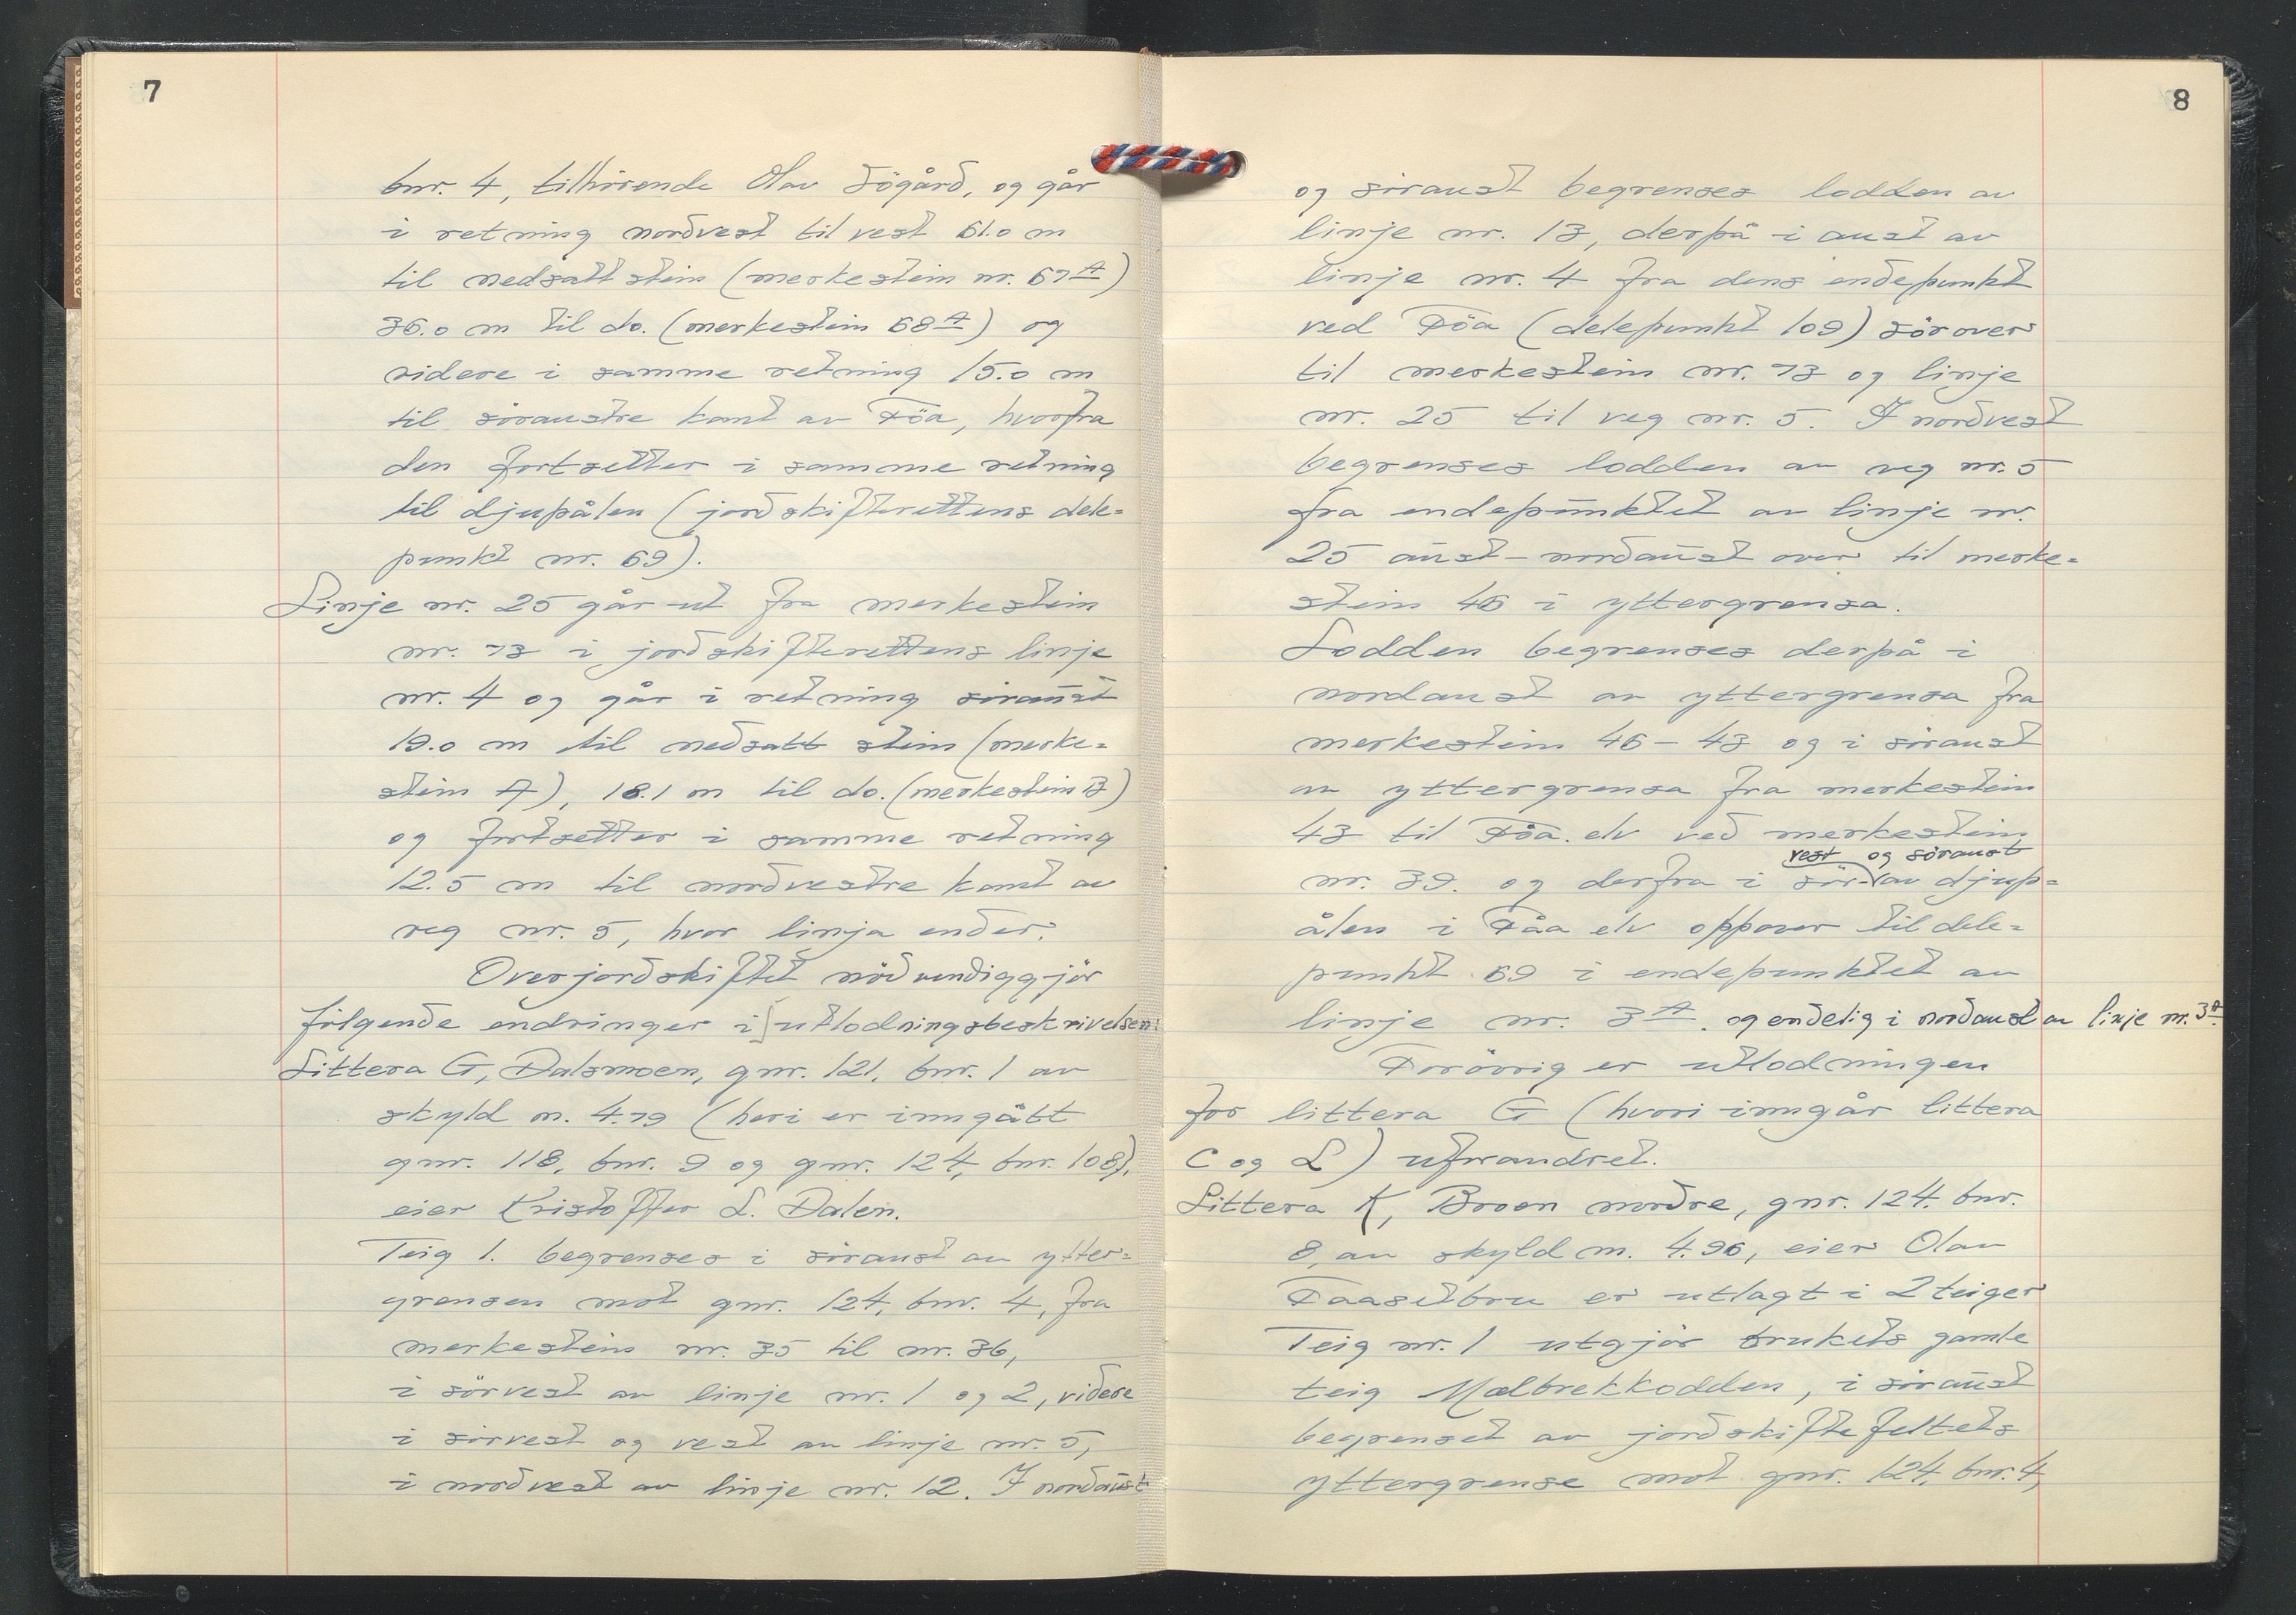 7
bnr. 4, tilhörende Olav Sögård, og går
i retning nordvest til vest 61.0 m
til nedsatt stein (merkestein nr. 67ᴬ)
36.0 m til do. (merkestein 68ᴬ) og
videre i samme retning 15.0 m
til söraustre kant av Föa, hvorfra
den fortsetter i samme retning
til djupålen (jordskifterettens dele=
punkt nr. 69).
Linje nr. 25 går ut fra merkestein
nr. 73 i jordskifterettens linje
nr. 4 og går i retning söraust
19.0 m til nedsatt stein (merke=
stein A), 18.1 m til do. (merkestein B)
og fortsetter i samme retning
12.5 m til nordvestre kant av
veg nr. 5, hvor linja ender.
Overjordskiftet nödvendiggjör
fölgende endringer i utlodningsbeskrivelsen:
Littera G, Dalsmoen, gnr. 121, bnr. 1 av
skyld m. 4.79 (heri er inngått
gnr. 118, bnr. 9 og gnr. 124, bnr. 108),
eier Kristoffer L. Dalen.
Teig 1. begrenses i söraust av ytter=
grensen mot gnr. 124, bnr. 4, fra
merkestein nr. 35 til nr. 36,
i sörvest av linje nr. 1 og 2, videre
i sörvest og vest av linje nr. 5,
i nordvest av linje nr. 12. I nordaust
8
og söraust begrenses lodden av
linje nr. 13, derpå i aust av
linje nr. 4 fra dens endepunkt
ved Föa (delepunkt 109) sörover
til merkestein nr. 73 og linje
nr. 25 til veg nr. 5. I nordvest
begrenses lodden av veg nr. 5
fra endepunktet av linje nr.
25 aust-nordaust over til merke=
stein 46 i yttergrensa.
Lodden begrenses derpå i
nordaust av yttergrensa fra
merkestein 46-43 og i söraust
av yttergrensa fra merkestein
43 til Föa elv ved merkestein
vest og söraust
nr. 39. og derfra i sör- av djup=
ålen i Fåa elv oppover til dele=
punkt 69 i endepunktet av
linje nr. 3ᴬ. og endelig i nordaust av linje nr. 3ᴬ.
Forövrig er utlodningen
for littera G (hvori inngår littera
C og L) uforandret.
Littera K, Broen nordre, gnr. 124, bnr.
8, av skyld m. 4.96, eier Olav
Faasetbru er utlagt i 2 teiger
Teig nr. 1 utgjör brukets gamle
teig Mælbrekkodden, i söraust
begrenset av jordskiftefeltets
yttergrense mot gnr. 124, bnr. 4,